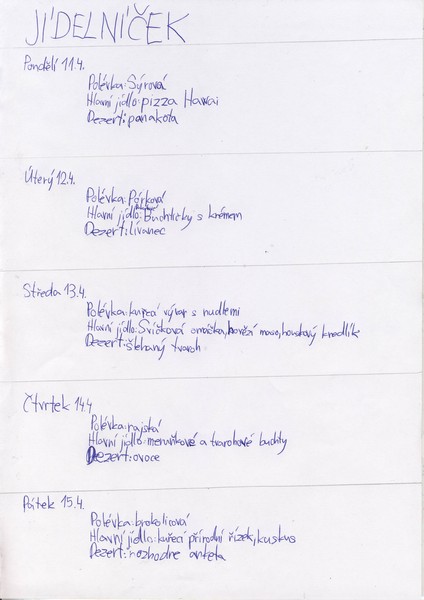 JÍDELNÍČEK
Pondělí 11.4.
Polévka: Sýrová
Hlavní jídlo: pizza Hawai
Dezert: panakota
Úterý 12.4.
Polévka: Pórková
Hlavní jídlo: Buchtičky s krémem
Dezert: lívanec
Středa 13.4.
Polévka: kuřecí vývar s nudlemi
Hlavní jídlo: Svíčková omáčka, hovězí maso, houskový knedlík
Dezert: šlehaný tvaroh
Čtvrtek 14.4
Polévka: rajská
Hlavní jídlo: meruňkové a tvarohové buchty
Dezert: ovoce
Pátek 15.4.
Polévka: brokolicová
Hlavní jídlo: kuřecí přírodní řízek, kuskus
Dezert: rozhodne anketa